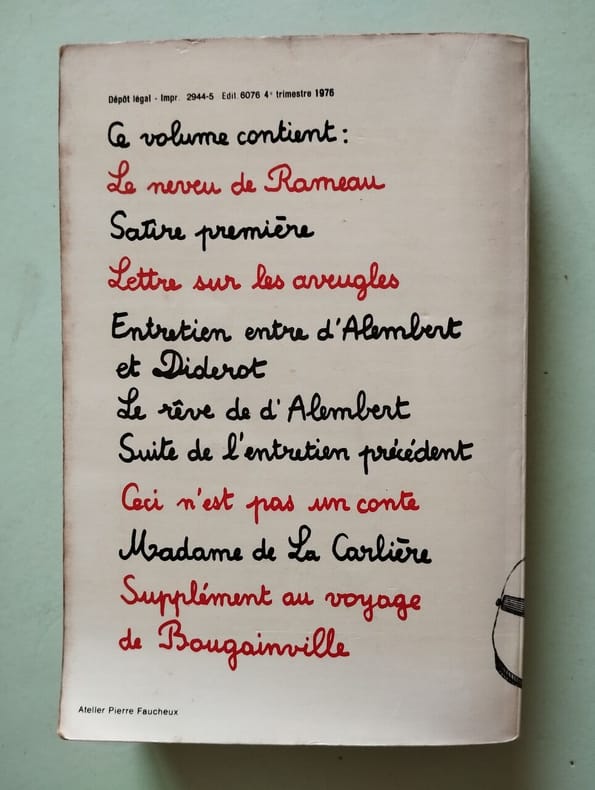 Dépôt légal - Impr. 2944-5 Edit. 6076 4e trimestre 1976
Ce volume contient :
Le neveu de Rameau
Satire première
Lettre sur les aveugles
Entretien entre d'Alembert
et Diderot
Le rêve de d'Alembert
Suite de l'entretien précédent
Ceci n'est pas un conte
Madame de La Carlière
Supplément au voyage
de Bougainville
Atelier Pierre Faucheux